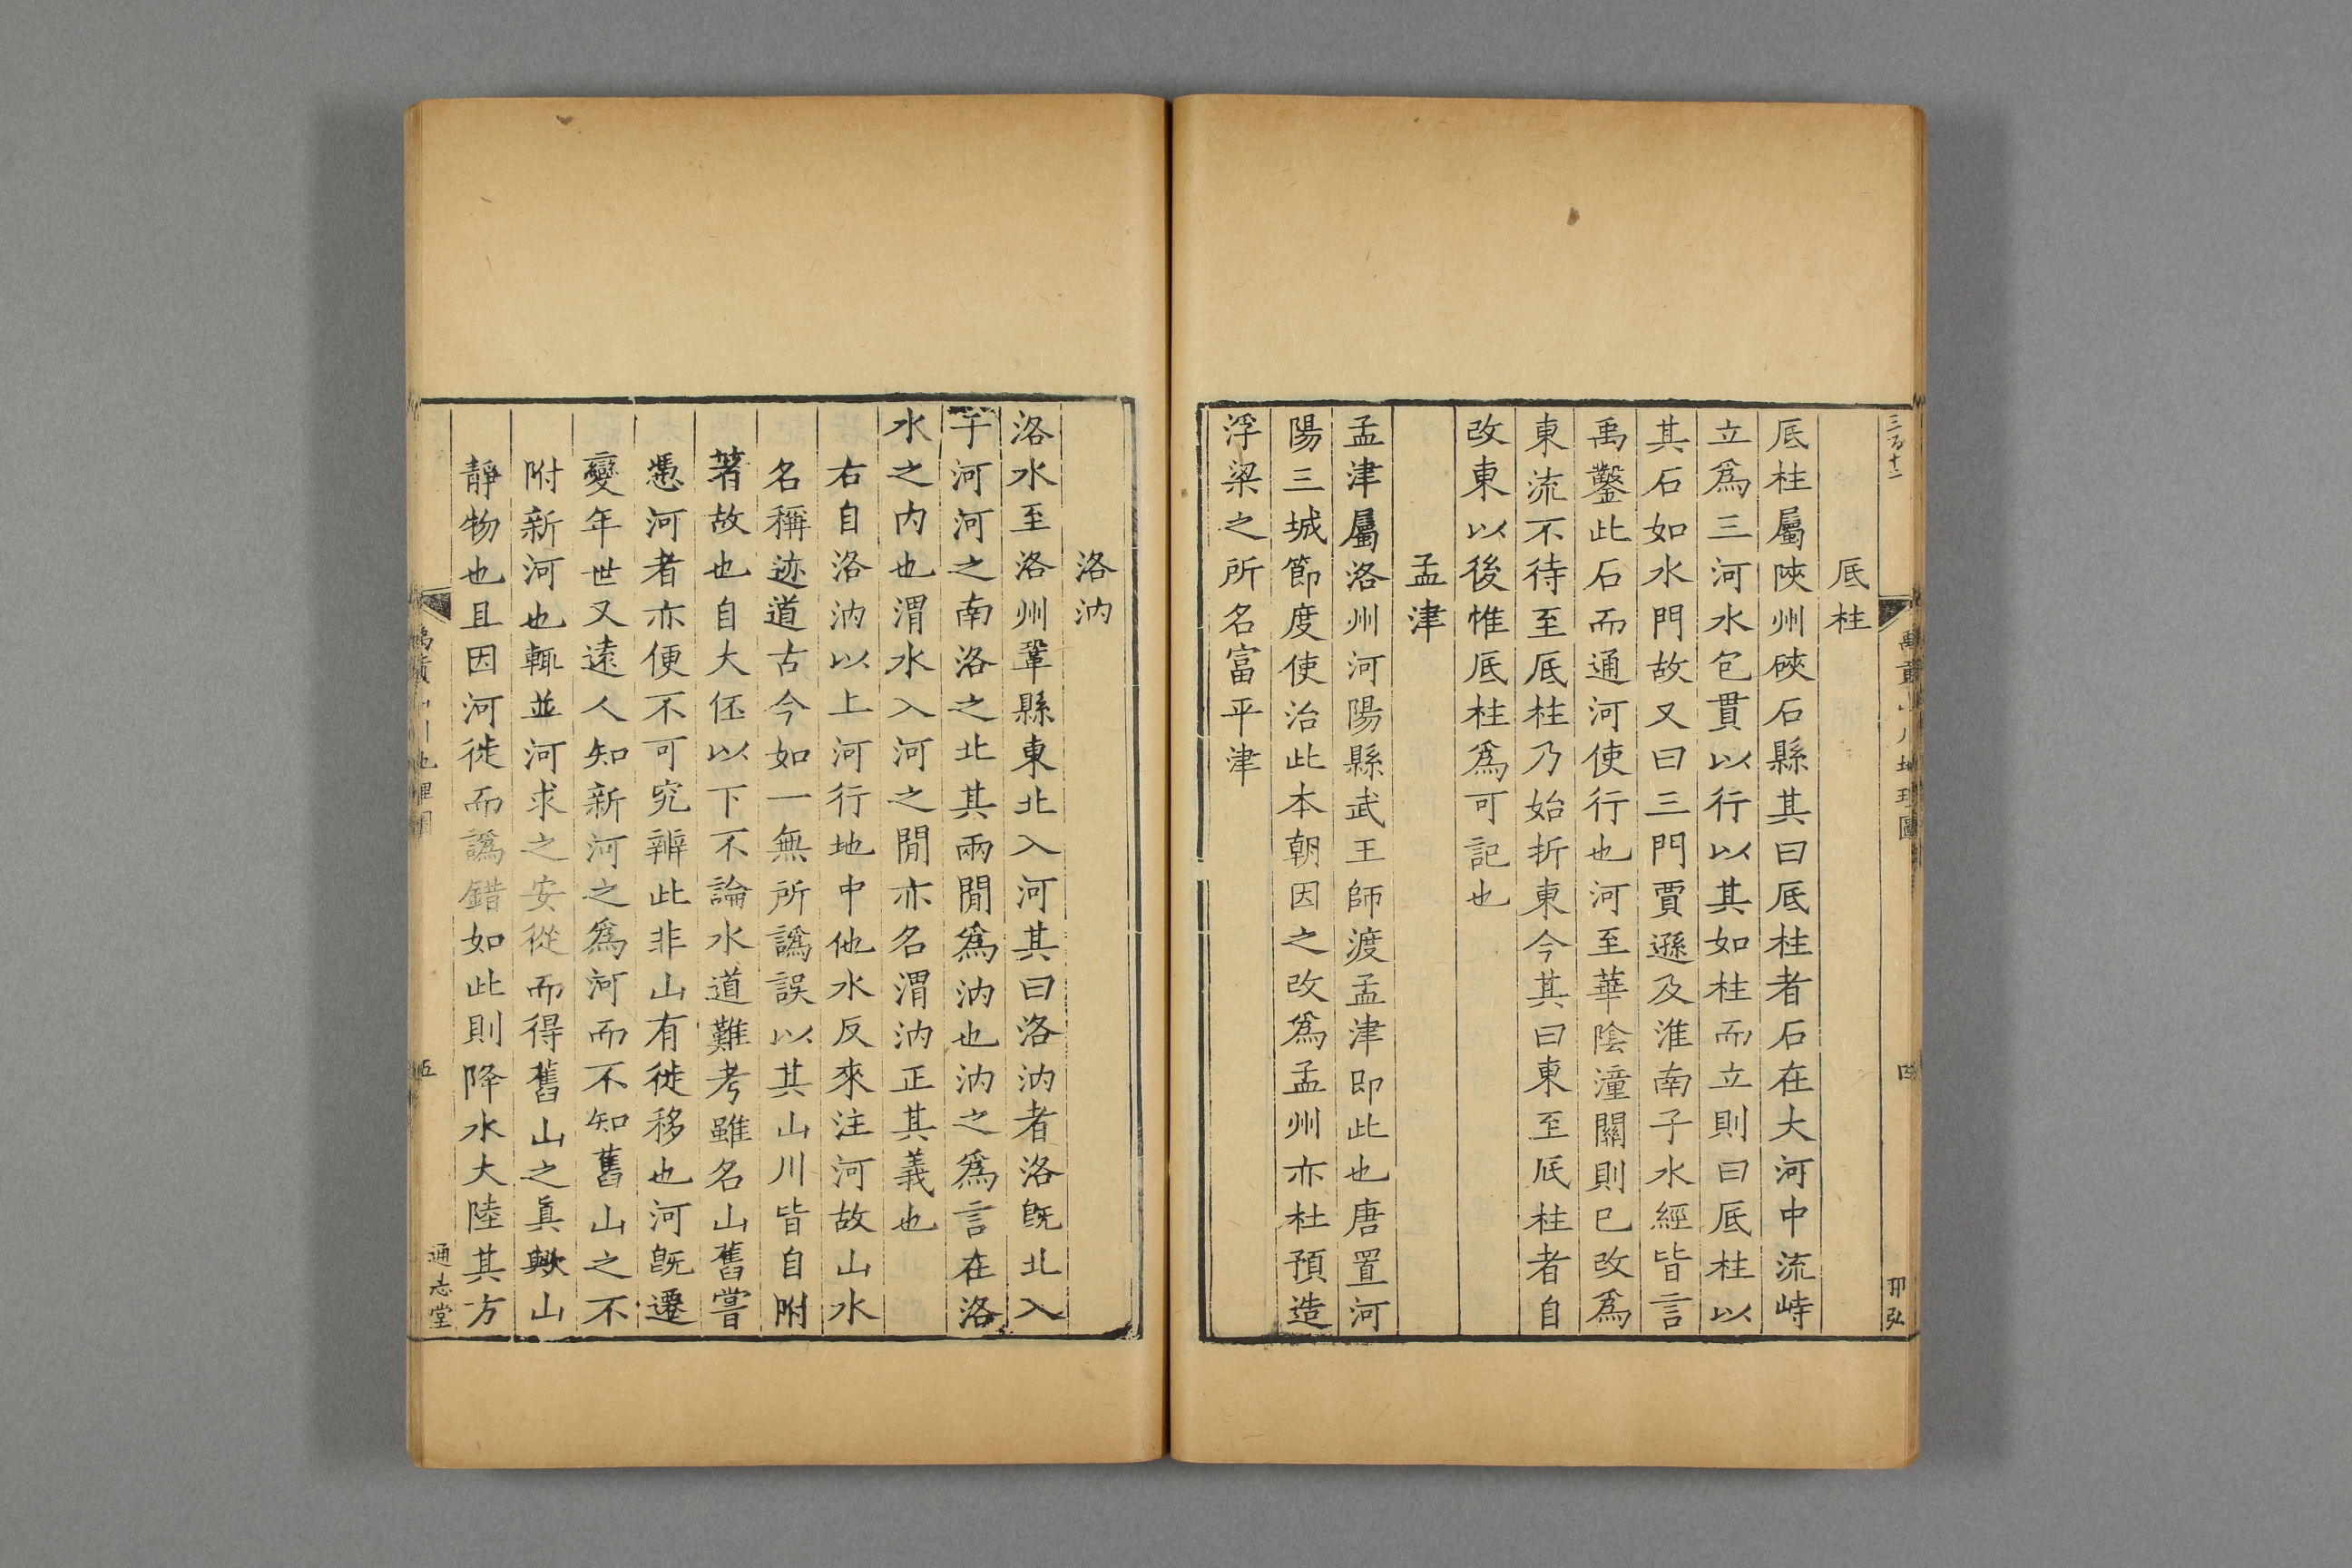 三百十二
禹貢山川地理圖
四
卭弘
底柱
底柱屬陜州硤石縣其曰底柱者石在大河中流峙
立爲三河水包貫以行以其如柱而立則曰底柱以
其石如水門故又曰三門賈遜及淮南子水經皆言
禹鑿此石而通河使行也河至華陰潼關則已改爲
東流不待至底柱乃始折東今其曰東至底柱者自
改東以後惟底柱爲可記也
孟津
孟津屬洛州河陽縣武王師渡孟津即此也唐置河
陽三城節度使治此本朝因之改爲孟州亦杜預造
浮梁之所名富平津
洛汭
洛水至洛州鞏縣東北入河其曰洛汭者洛旣北入
于河河之南洛之北其兩閒爲汭也汭之爲言在洛
水之内也渭水入河之閒亦名渭汭正其義也
右自洛汭以上河行地中他水反來注河故山水
名稱迹道古今如一無所譌誤以其山川皆自附
著故也自大伾以下不論水道難考雖名山舊嘗
憑河者亦便不可究辨此非山有徙移也河旣遷
變年世又遠人知新河之爲河而不知舊山之不
附新河也輒並河求之安從而得舊山之真歟山
靜物也且因河徙而譌錯如此則降水大陸其方
禹貢山川地理圖
五
通志堂